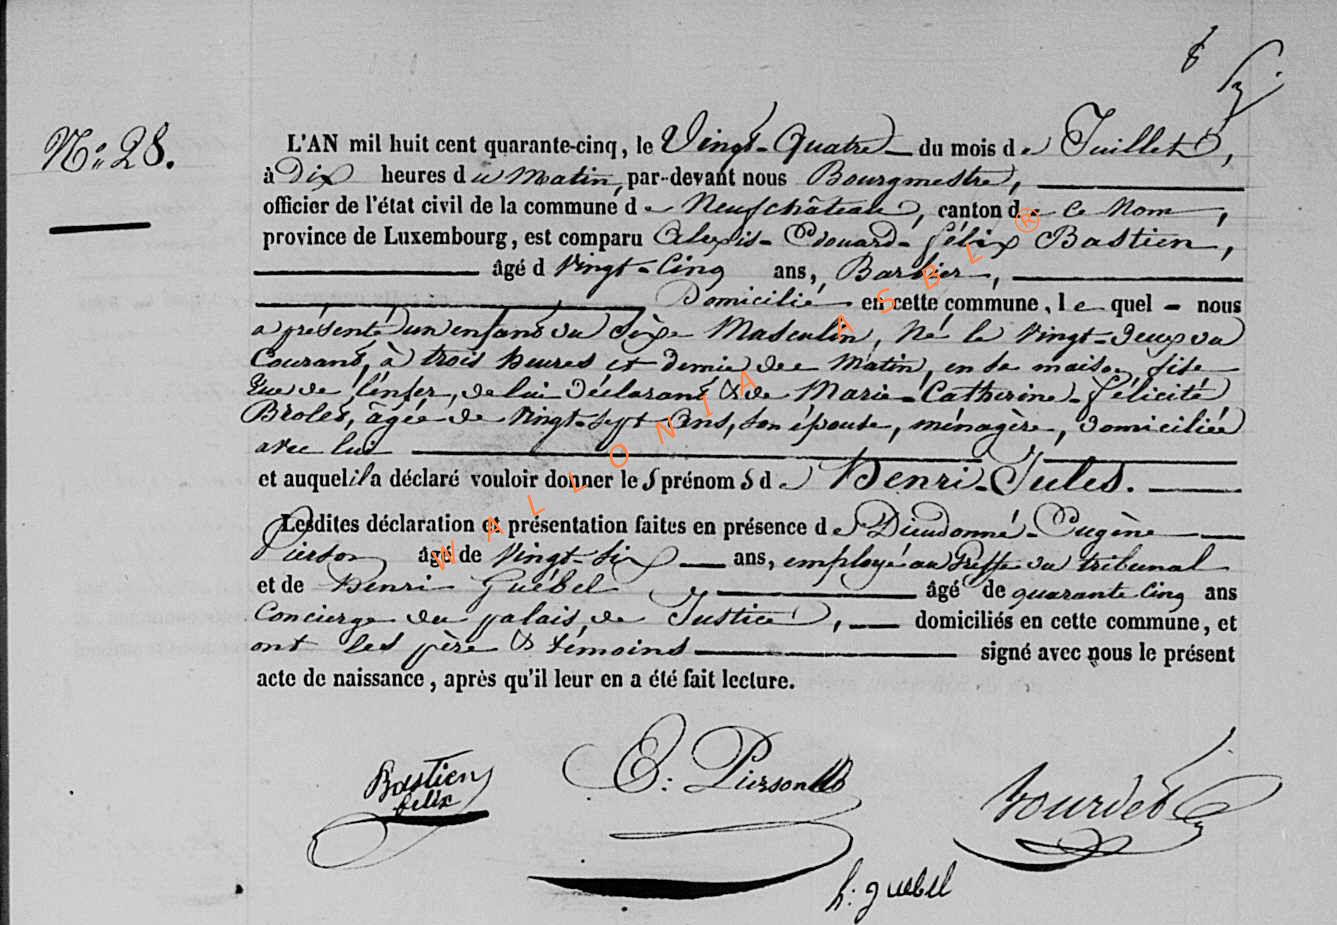 N.o 28.
L'AN mil huit cent quarante-cinq, le Vingt-Quatre du mois de Juillet,
à Dix heures du Matin, par-devant nous Bourgmestre,
officier de l'état civil de la commune de Neufchâteau, canton de ce Nom,
province de Luxembourg, est comparu Alexis-Edouard-félix Bastien,
âgé d Vingt-Cinq ans, Barbier,
Domicilié en cette commune, le quel - nous
a présenté un enfant du sèxe Masculin, Né le Vingt-deux du
Courant, à trois heures et demie de Matin, en sa maison sise
Rue de l'enfer, de lui déclarant & de Marie-Catherine-félicité
Broles, âgée de Vingt-sept Ans, son épouse, ménagère, domiciliée
avec lui
et auquel il a déclaré vouloir donner les prénoms de Henri-Jules.
Lesdites déclaration et présentation faites en présence de Dieudonné-Eugène
Pierson âgé de Vingt-six ans, employé au Greffe du tribunal
et de Henri Guébel âgé de quarante Cinq ans
Concierge du palais de Justice, domiciliés en cette commune, et
ont les père & témoins signé avec nous le présent
acte de naissance, après qu'il leur en a été fait lecture.
Bastien
felix
E: Pierson
Bourdet
h: guebel
WALLONIA ASBL ®